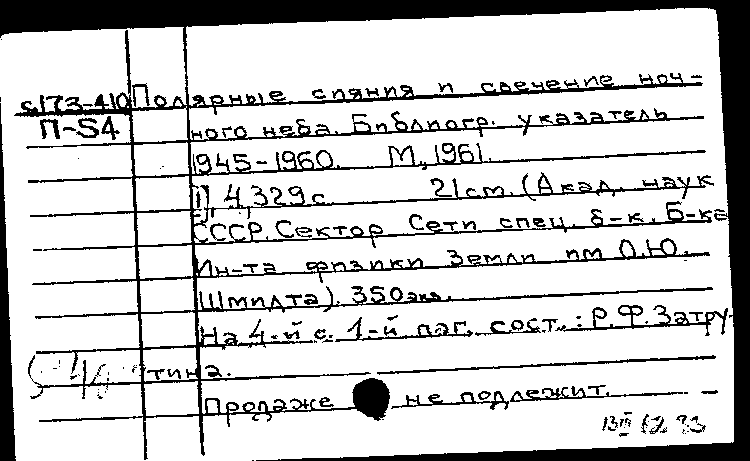 S173-410 Полярные сияния и свечение ноч-
П-54 ного неба. Библиогр. указатель
1945-1960. М., 1961.
1], 4, 329 с. 21 см. (Акад. наук
СССР. Сектор Сети спец. б-к. Б-ка
Ин-та физики Земли им О.Ю.
Шмидта). 350 экз.
На 4-й с. 1-й паг. сост.: Р.Ф. Затру-
тина.
Продаже не подлежит.